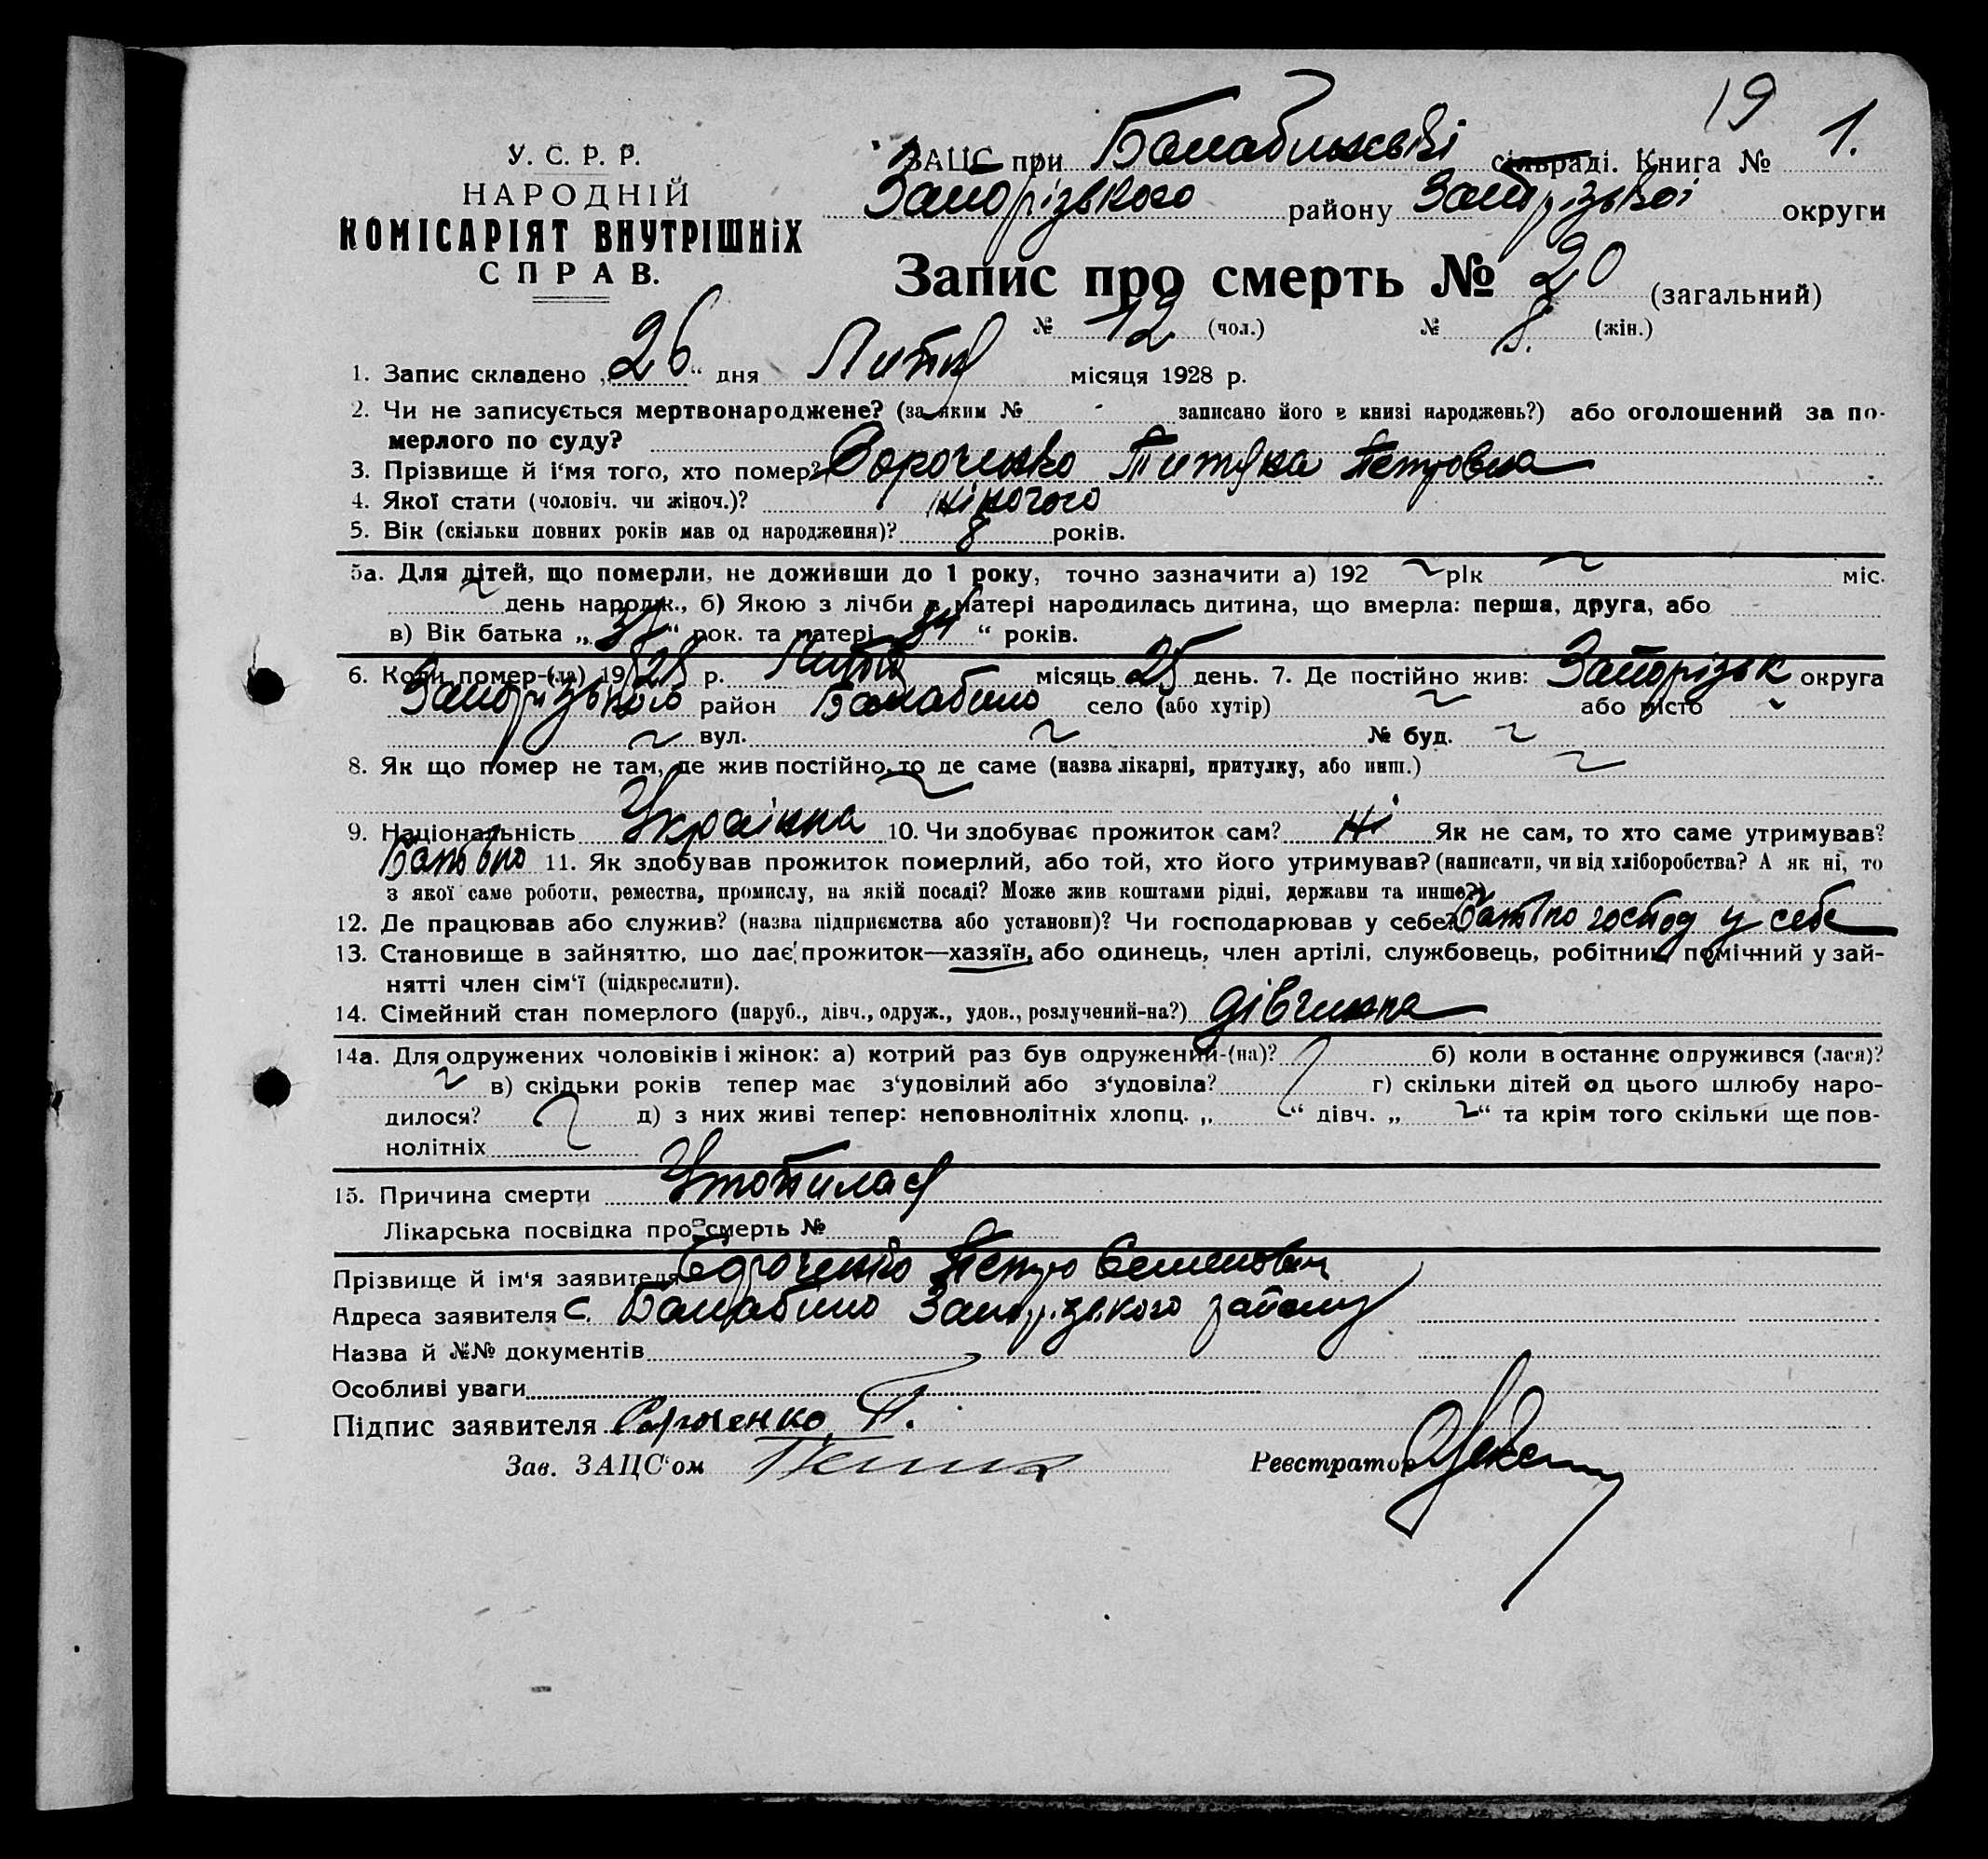 19 1.
У. С. Р. Р.
НАРОДНІЙ
КОМІСАРІЯТ ВНУТРІШНІХ
СПРАВ.
ЗАЦС при Балабинській сільраді. Книга №
Запорізького району Запорізької округи
Запис про смерть № 20 (загальний)
№ 12 (чол.) № 8. (жін.)
1. Запис складено „26“ дня Лютня місяця 1928 р.
2. Чи не записується мертвонароджене? (за яким № - записано його в книзі народжень?) або оголошений за по-
мерлого по суду?
3. Прізвище й і‘мя того, хто помер? Петровна
4. Якої стати (чоловіч. чи жіноч.)? жіночого
5. Вік (скільки повних років мав од народження)? 8 років.
5а. Для дітей, що померли, не доживши до 1 року, точно зазначити а) 192 ~ рік ~ міс.
~ день народж., б) Якою з лічби в матері народилась дитина, що вмерла: перша, друга, або
в) Вік батька „ “ рок. та матері 34 “ років.
6. Коли помер-(ла) 1928 р. місяць 25 день. 7. Де постійно жив: Запорізьк округа
Запорізького район Балабино село (або хутір) ~ або місто ~
~ вул. ~ № буд. ~
8. Як що помер не там, де жив постійно, то де саме (назва лікарні, притулку, або инш.) ~
~
9. Національність Українка 10. Чи здобуває прожиток сам? ні Як не сам, то хто саме утримував?
Батько 11. Як здобував прожиток померлий, або той, хто його утримував? (написати, чи від хліборобства? А як ні, то
з якої саме роботи, ремества, промислу, на якій посаді? Може жив коштами рідні, держави та инше?)
12. Де працював або служив? (назва підприємства або установи)? Чи господарював у себе? Батько господ у себе
13. Становище в зайняттю, що дає прожиток—хазяїн, або одинець, член артілі, службовець, робітник, помічний у зай-
нятті член сім‘ї (підкреслити).
14. Сімейний стан померлого (паруб., дівч., одруж., удов., розлучений-на?) дівчина
14а. Для одружених чоловіків і жінок: а) котрий раз був одружений-(на)? б) коли в останнє одружився (лася)?
~ в) скільки років тепер має з‘удовілий або з‘удовіла? г) скільки дітей од цього шлюбу наро-
дилося? д) з них живі тепер: неповнолітніх хлопц. „ “ дівч. „ ~“ та крім того скільки ще пов-
нолітніх
15. Причина смерти Утопилася
Лікарська посвідка про смерть №
Прізвище й ім‘я заявителя Петро Семенович
Адреса заявителя с. Балабино Запорізького району
Назва й №№ документів
Особливі уваги
Підпис заявителя П.
Зав. ЗАЦС‘ом
Реєстратор